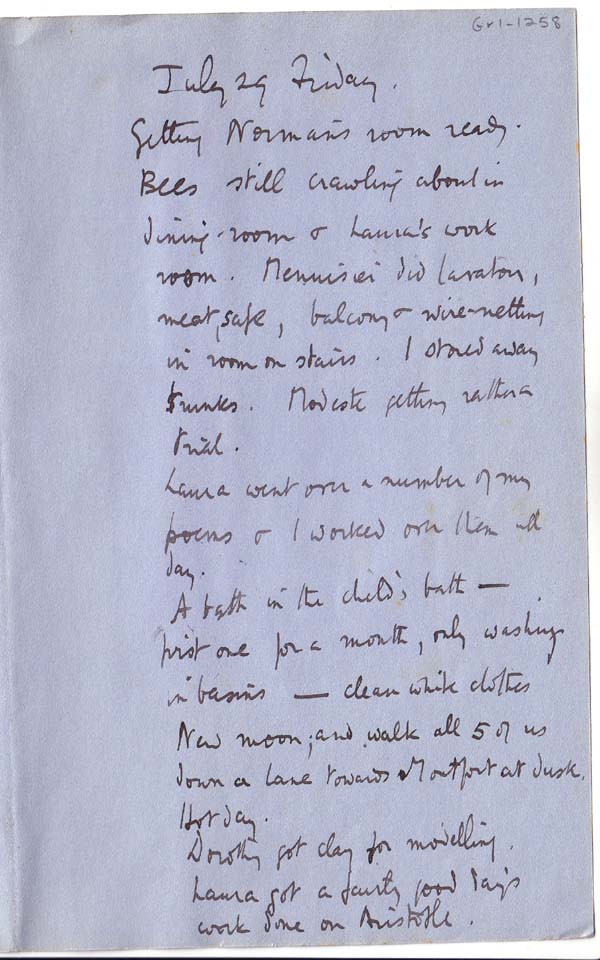 Gr1-1258
July 29 Friday.
Getting Norman's room ready.
Bees still crawling about in
dining-room & Laura's work
room. Menuisier did lavatory,
meat safe, balcony & wire-netting
in room on stairs. I stored away
trunks. Modeste getting rather a
trial.
Laura went over a number of my
poems & I worked over them all
day.
A bath in the child's bath —
first one for a month, only washing
in basins — clean white clothes
New moon; and walk all 5 of us
down a lane towards Montfort at dusk.
Hot day.
Dorothy got clay for modelling.
Laura got a fairly good day's
work done on Aristotle.